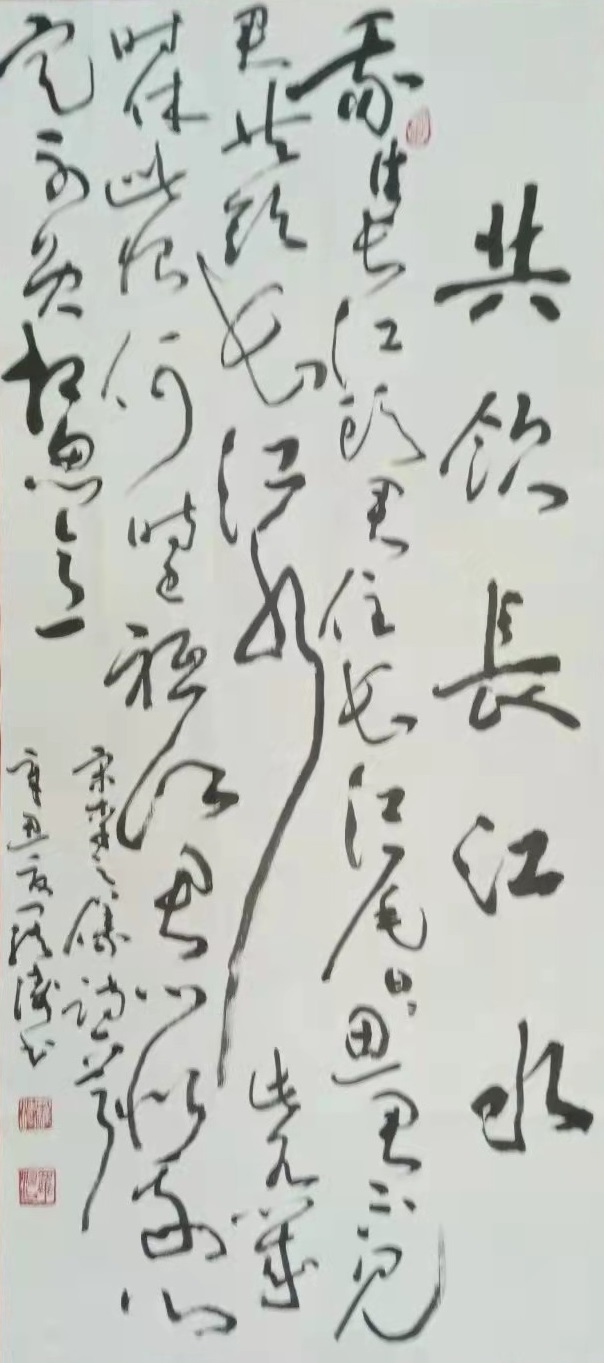 共飲長江水
我住长江頭君住长江尾日日思君不見
君共飲长江水此水幾
时休此恨何時已祗願君心似我心
定不負相思意
宋李之儀詩一首
辛丑夏